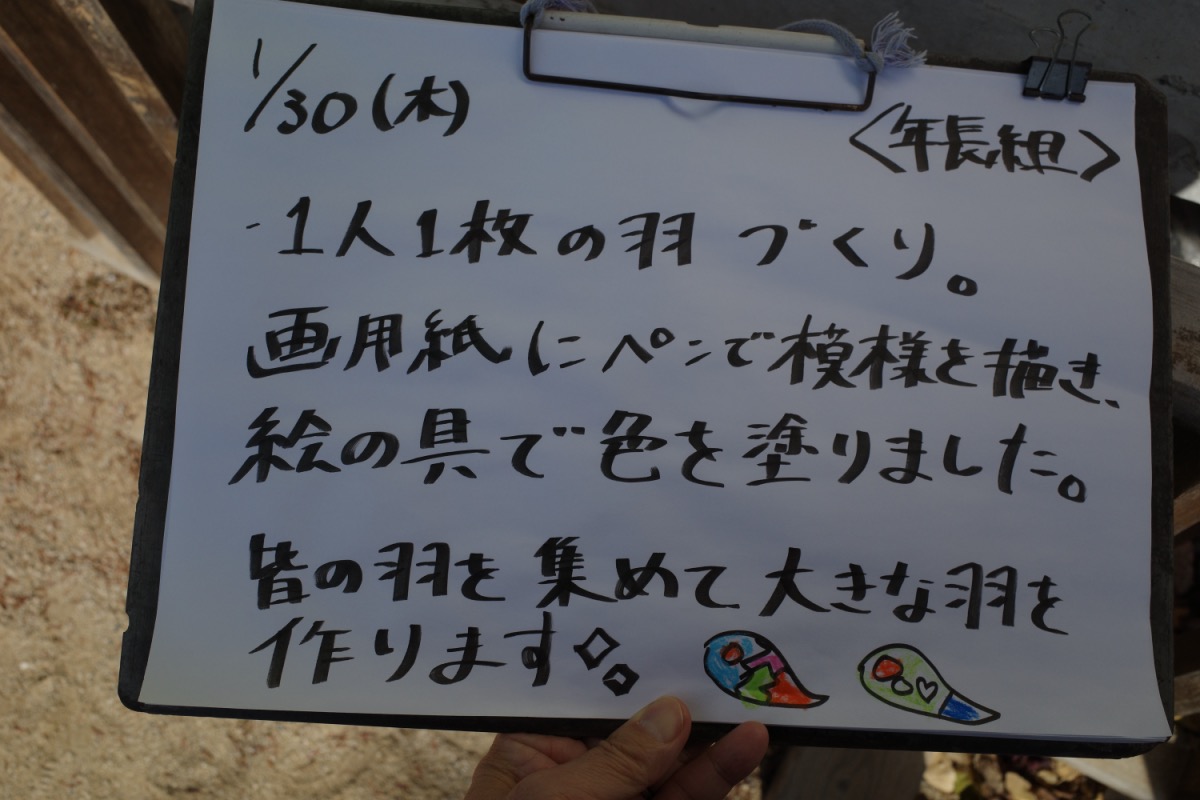 1/30(木)
〈年長組〉
・1人1枚の羽づくり。
画用紙にペンで模様を描き、
絵の具で色を塗りました。
皆の羽を集めて大きな羽を
作ります